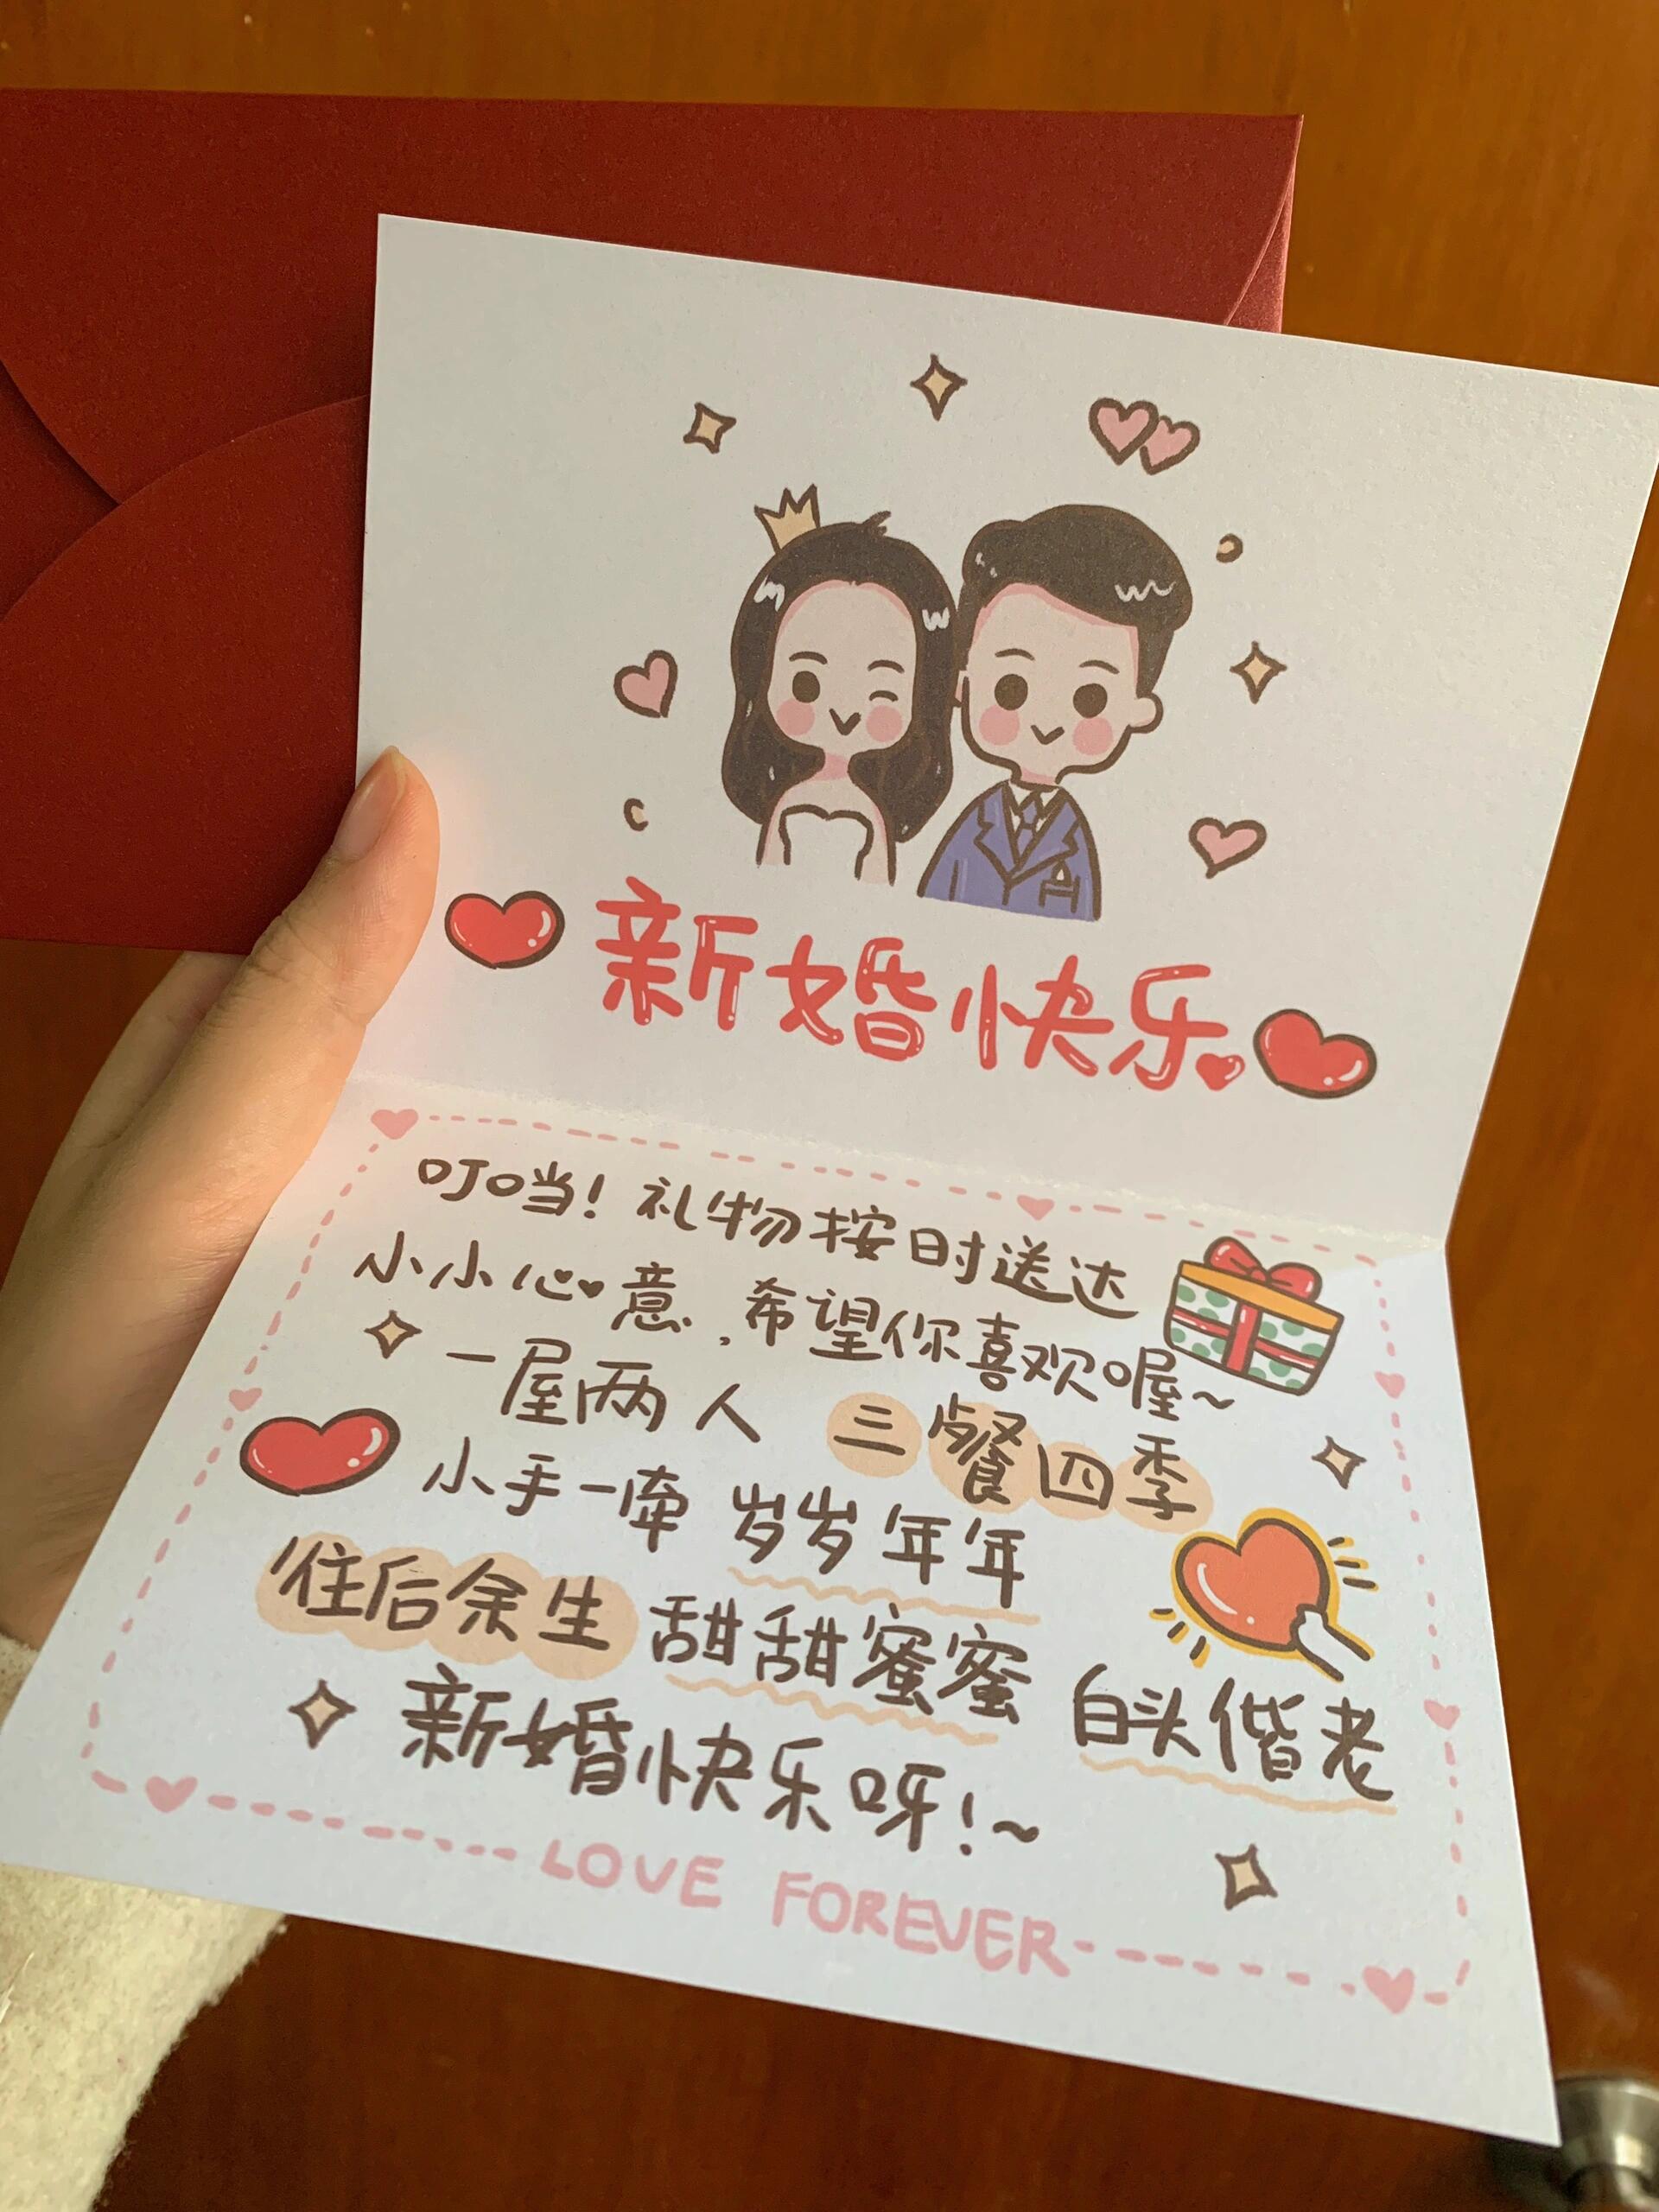 新婚快乐
叮当！礼物按时送达
小小心意，希望你喜欢喔~
一屋两人 三餐四季
小手一牵 岁岁年年
往后余生 甜甜蜜蜜 白头偕老
新婚快乐呀！~
LOVE FOREVER